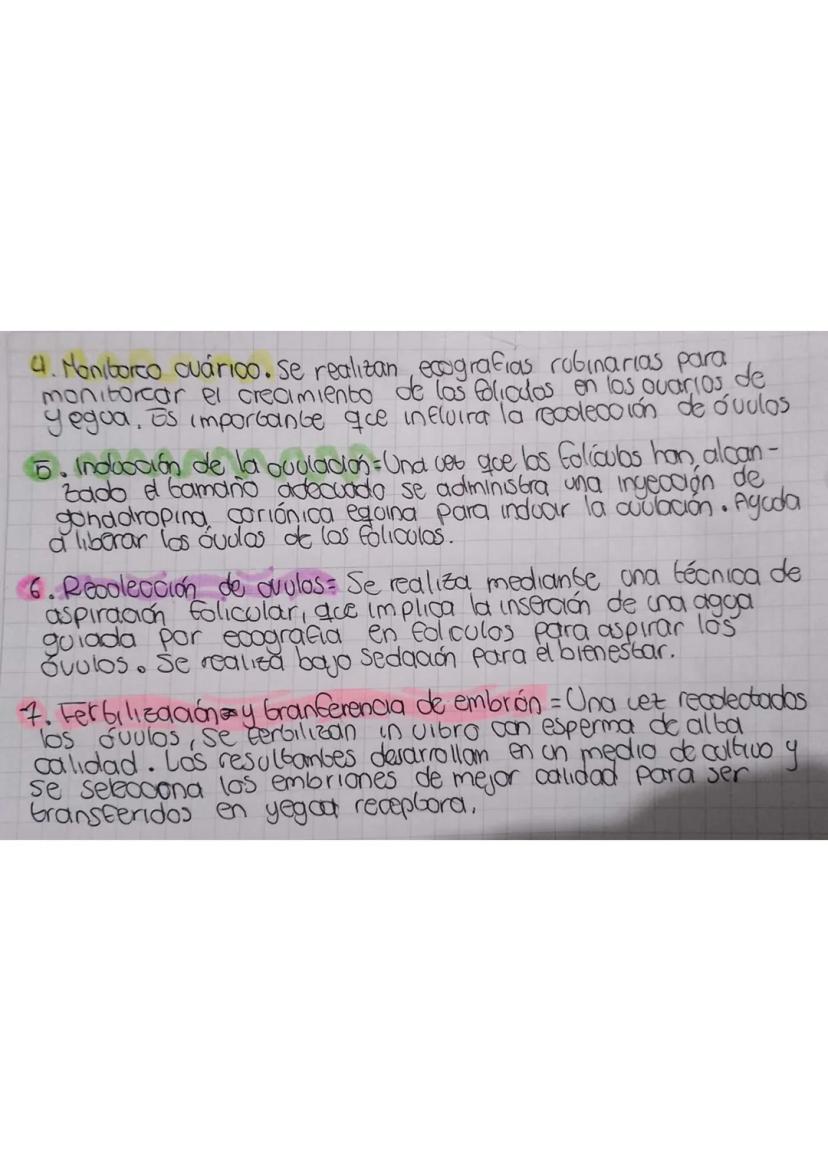 4. Monitoreo ovárico. Se realizan ecografías rutinarias para
monitorear el crecimiento de los folículos en los ovarios de
yegua. Es importante que influira la recolección de óvulos
5. Inducción de la ovulación = Una vez que los folículos han alcan-
zado el tamaño adecuado se administra una inyección de
gonadropina coriónica equina para inducir la ovulación. Ayuda
a liberar los óvulos de los folículos.
6. Recolección de óvulos = Se realiza mediante una técnica de
aspiración folicular, que implica la inserción de una aguja
guiada por ecografía en folículos para aspirar los
óvulos. Se realiza bajo sedación para el bienestar.
7. Fertilización y tranferencia de embrón = Una vez recolectados
los óvulos, se fertilizan in vitro con esperma de alta
calidad. Los resultantes desarrollam en un medio de cultivo y
se seleccona los embriones de mejor calidad para ser
transferidos en yegua receptora.